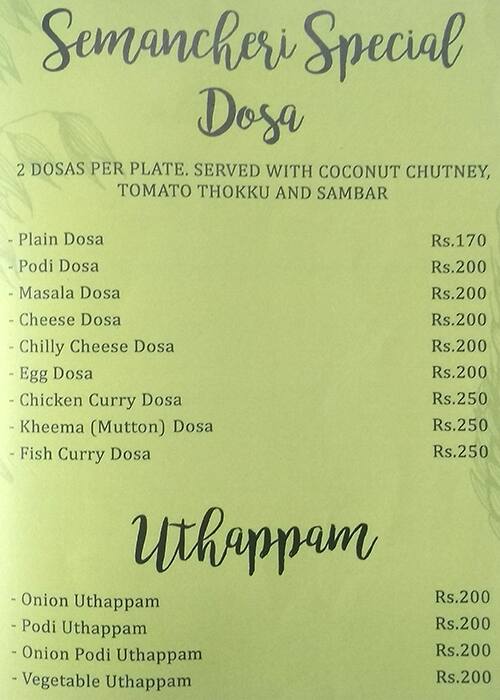 Semancheri Special
Dosa
2 DOSAS PER PLATE. SERVED WITH COCONUT CHUTNEY,
TOMATO THOKKU AND SAMBAR
- Plain Dosa Rs.170
- Podi Dosa Rs.200
- Masala Dosa Rs.200
- Cheese Dosa Rs.200
- Chilly Cheese Dosa Rs.200
- Egg Dosa Rs.200
- Chicken Curry Dosa Rs.250
- Kheema (Mutton) Dosa Rs.250
- Fish Curry Dosa Rs.250
Uthappam
- Onion Uthappam Rs.200
- Podi Uthappam Rs.200
- Onion Podi Uthappam Rs.200
- Vegetable Uthappam Rs.200